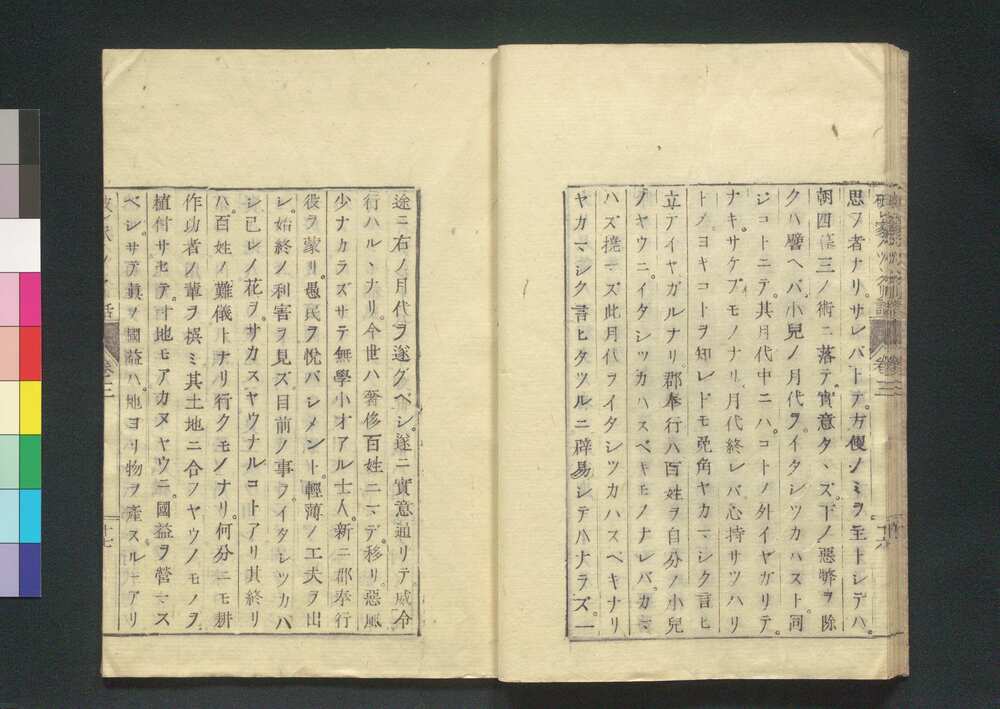 思フ者ナリ。サレバトテ。方便ノミヲ主トシテハ。
朝四暮三ノ術ニ落テ。實意タヽズ。下ノ惡弊ヲ除
クハ譬ヘバ小兒ノ月代ヲ。イタシツカハスト。同
ジコトニテ。其月代中ニハ。コトノ外イヤガリテ。
ナキ。サケブモノナリ。月代終レバ。心持サツハリ
トメヨキコトヲ知レドモ兎角ヤカマシク言ヒ
立テイヤガルナリ郡奉行ハ百姓ヲ自分ノ小兒
ノヤウニ。イタシツカハスベキモノナレバ。カマ
ハズ撓マズ此月代ヲイタシツカハスベキナリ
ヤカマシク言ヒタツルニ辟易シテハナラズ。一
卷三
途ニ右ノ月代ヲ遂グベシ。遂ニ實意通リテ威令
行ハルヽナリ。今世ハ奢侈百姓ニマデ。移リ。惡風
少ナカラズサテ無學小才アル士人。新ニ郡奉行
役ヲ蒙リ。愚民ヲ悅バシメント。輕薄ノ工夫ヲ出
シ。始終ノ利害ヲ見ズ。目前ノ事ヲイタシツカハ
シ已レノ花ヲ。サカスヤウナルコトアリ其終リ
ハ。百姓ノ難儀トナリ行クモノナリ。何分ニモ耕
作功者ノ輩ヲ撰ミ其土地ニ合フヤウノモノヲ
植付サセテ。寸地モアカヌヤウニ。國益ヲ營マス
ベシ。サテ眞ノ國益ハ。地ヨリ物ヲ產スルニアリ
卷三
十七